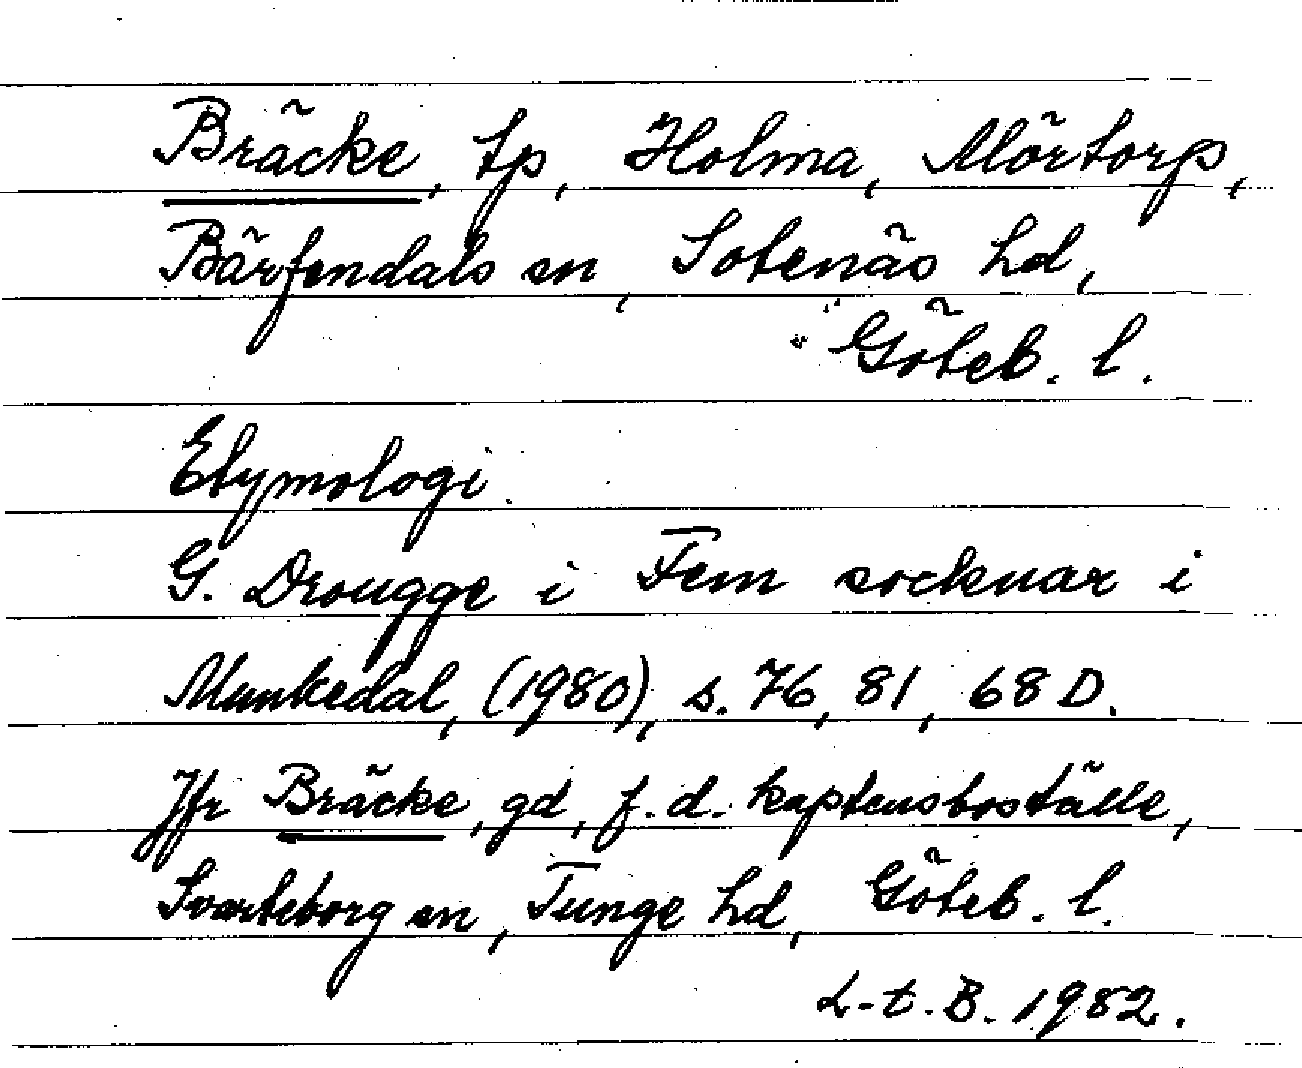 Bräcke, tp, Holma, Mörtorp,
Bärfendals sn, Sotenäs hd,
Göteb. l.
Etymologi.
G. Drougge i Fem socknar i
Munkedal, (1980), s. 76, 81, 68 D.
Jfr Bräcke, gd, f. d. kaptensboställe,
Svarteborg sn, Tunge hd, Göteb. l.
L-t. B. 1982.